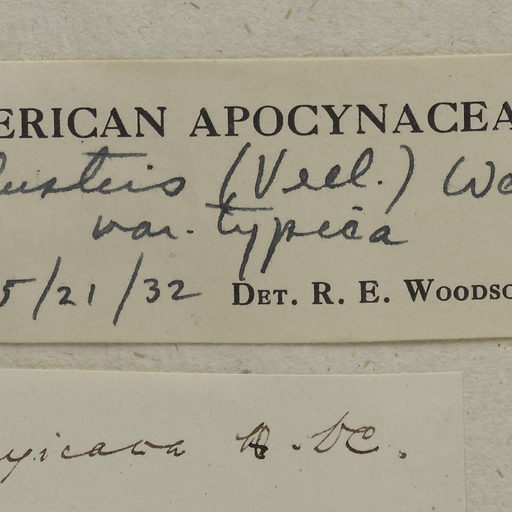 ERICAN APOCYNACEA
(Vell.) Wo
var. typica
5/21/32 DET. R. E. WOODSO
A. DC.